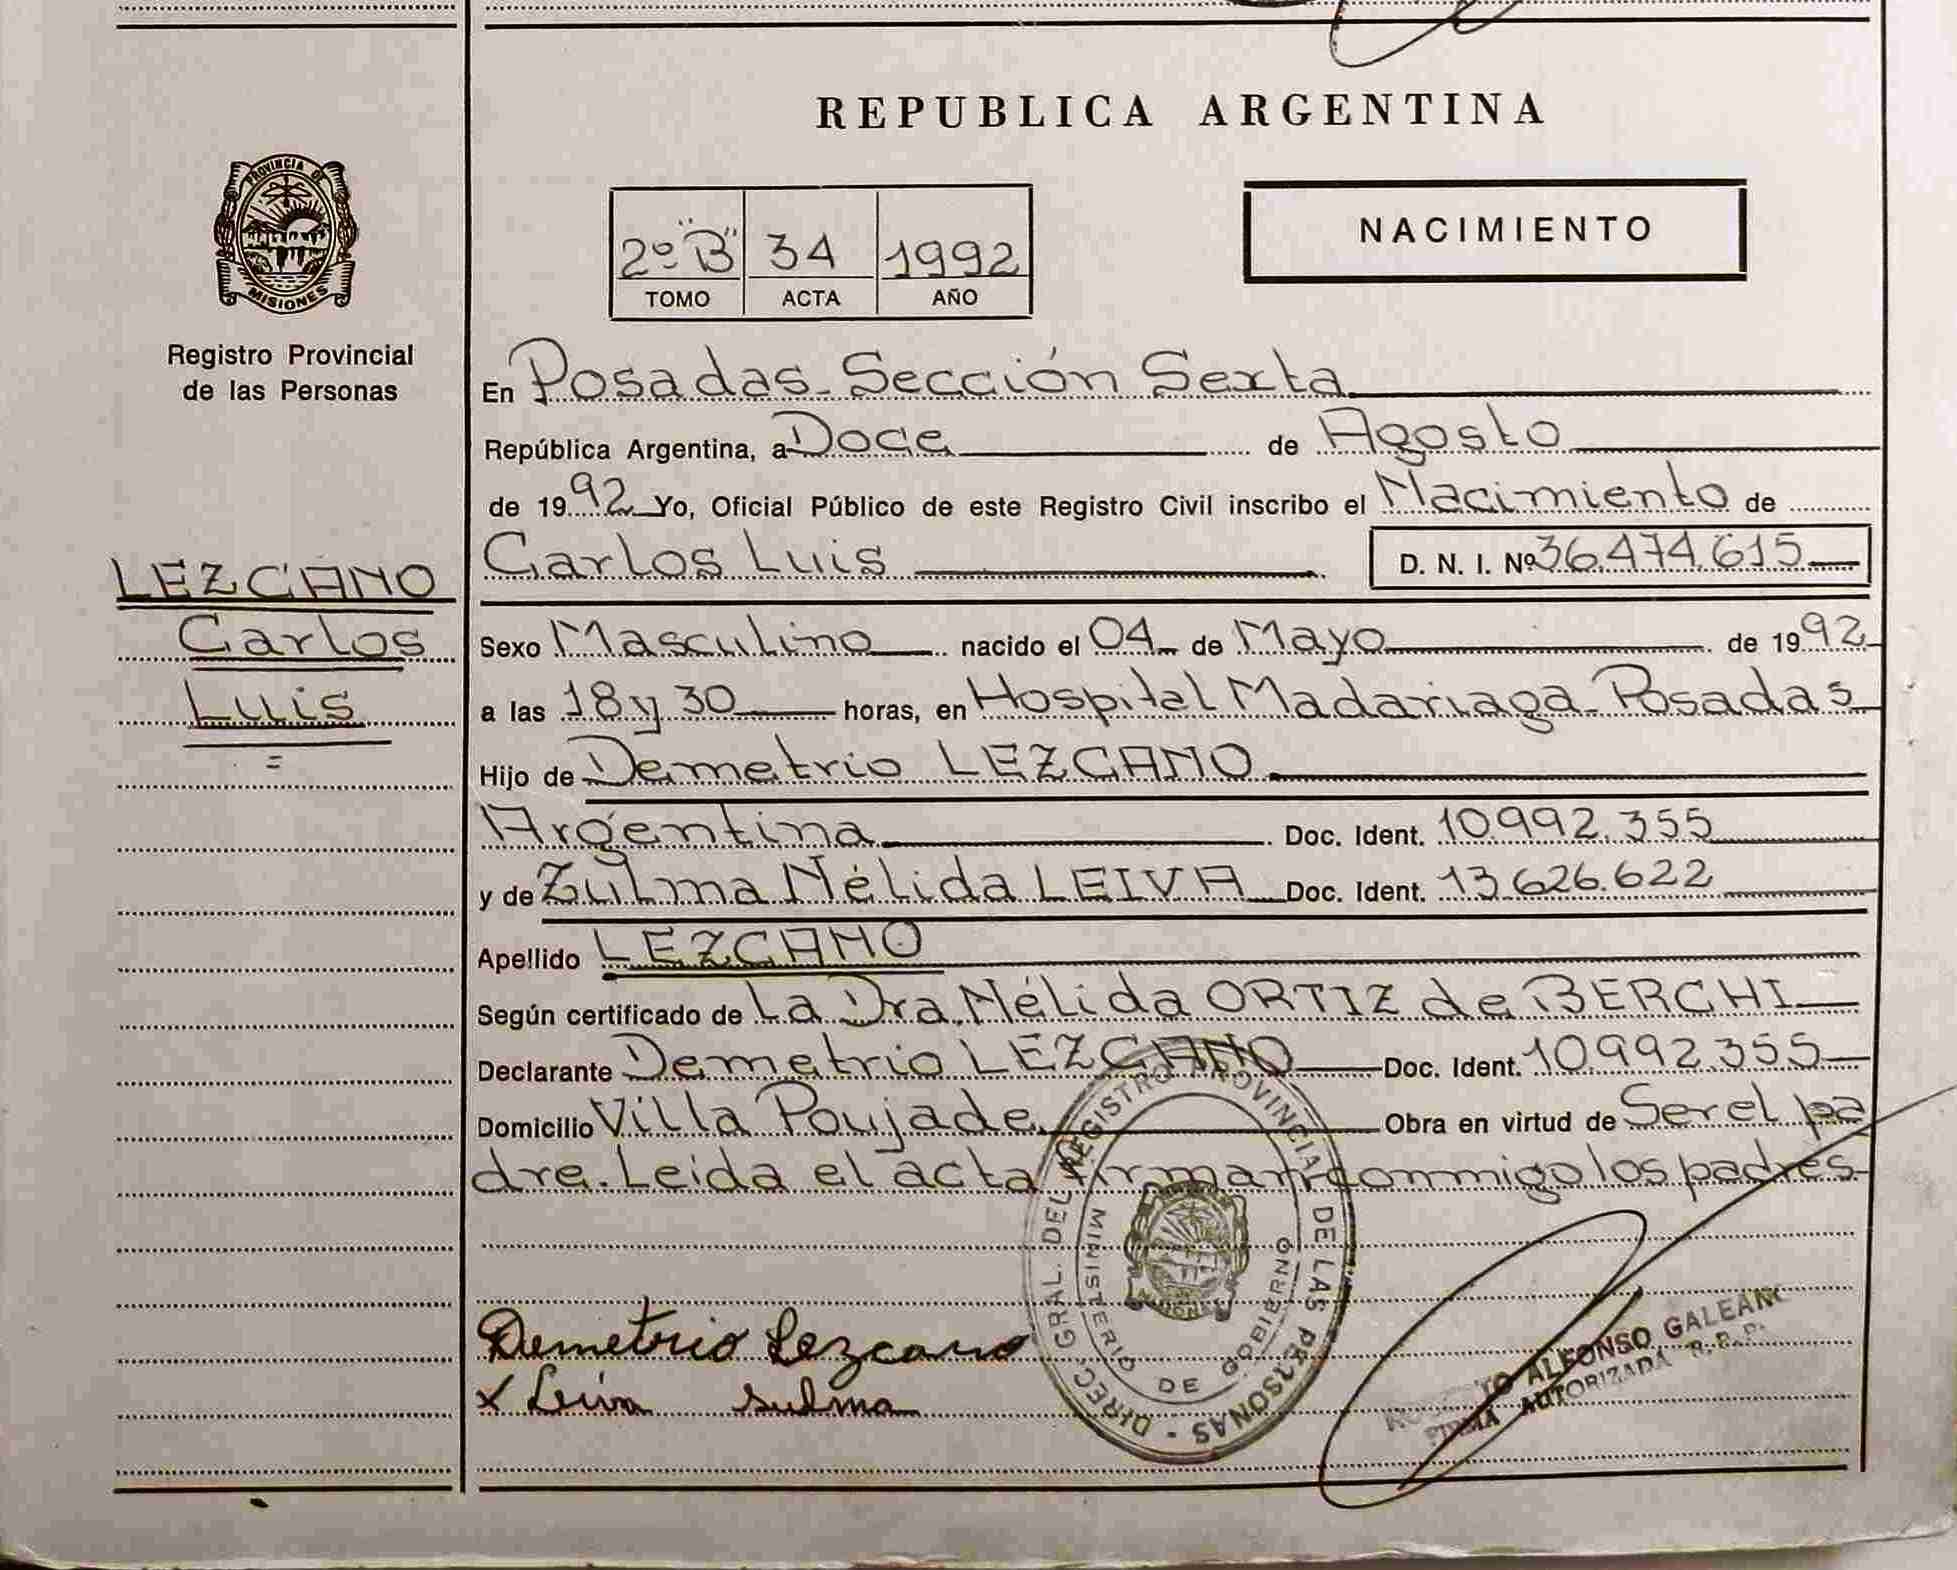 REPUBLICA ARGENTINA
PROVINCIA DE
MISIONES
Registro Provincial
de las Personas
2º "B" 34 1992
TOMO ACTA AÑO
NACIMIENTO
En Posadas - Sección Sexta
República Argentina, a Doce de Agosto
de 1992 Yo, Oficial Público de este Registro Civil inscribo el Nacimiento de
Carlos Luis D. N. I. Nº 36.474.615
LEZCANO
Carlos
Luis
Sexo Masculino nacido el 04 de Mayo de 1992
a las 18 y 30 horas, en Hospital Madariaga - Posadas
Hijo de Demetrio LEZCANO
Argentina Doc. Ident. 10.992.355
y de Zulma Nélida LEIVA Doc. Ident. 13.626.622
Apellido LEZCANO
Según certificado de La Dra. Nélida ORTIZ de BERCHI
Declarante Demetrio LEZCANO Doc. Ident. 10.992.355
Domicilio Villa Poujade Obra en virtud de Ser el pa
dre. Leida el acta firman conmigo los padres
DIREC. GRAL. DEL REGISTRO PROVINCIAL DE LAS PERSONAS -
MINISTERIO DE GOBIERNO
MISIONES
Demetrio Lezcano
x Leiva sulma
ALFONSO GALEANO
FIRMA AUTORIZADA R.P.P.